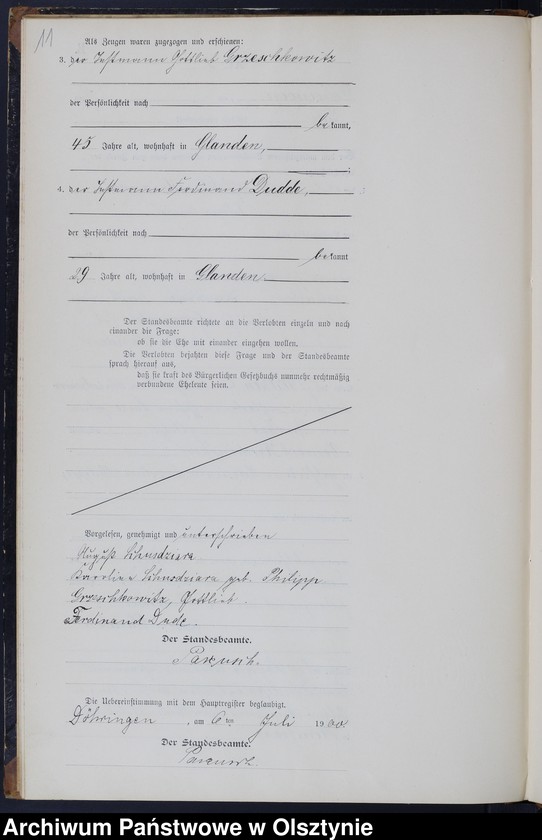 11
Als Zeugen waren zugezogen und erschienen:
3. der Instmann Gottlieb Grzeschkowitz
der Persönlichkeit nach
be kannt,
45 Jahre alt, wohnhaft in Glanden,
;
4. der Instmann Ferdinand Dudde,
der Persönlichkeit nach
be kannt
29 Jahre alt, wohnhaft in Glanden
Der Standesbeamte richtete an die Verlobten einzeln und nach
einander die Frage:
ob sie die Ehe mit einander eingehen wollen.
Die Verlobten bejahten diese Frage und der Standesbeamte
sprach hierauf aus,
daß sie kraft des Bürgerlichen Gesetzbuchs nunmehr rechtmäßig
verbundene Eheleute seien.
Vorgelesen, genehmigt und unterschrieben
August
Karoline geb. Philipp
Grzeschkowitz, Gottlieb.
Ferdinand Dude.
Der Standesbeamte.
Die Uebereinstimmung mit dem Hauptregister beglaubigt.
Döhringen, am 6ten Juli 1900
Der Standesbeamte.
Archiwum Państwowe w Olsztynie